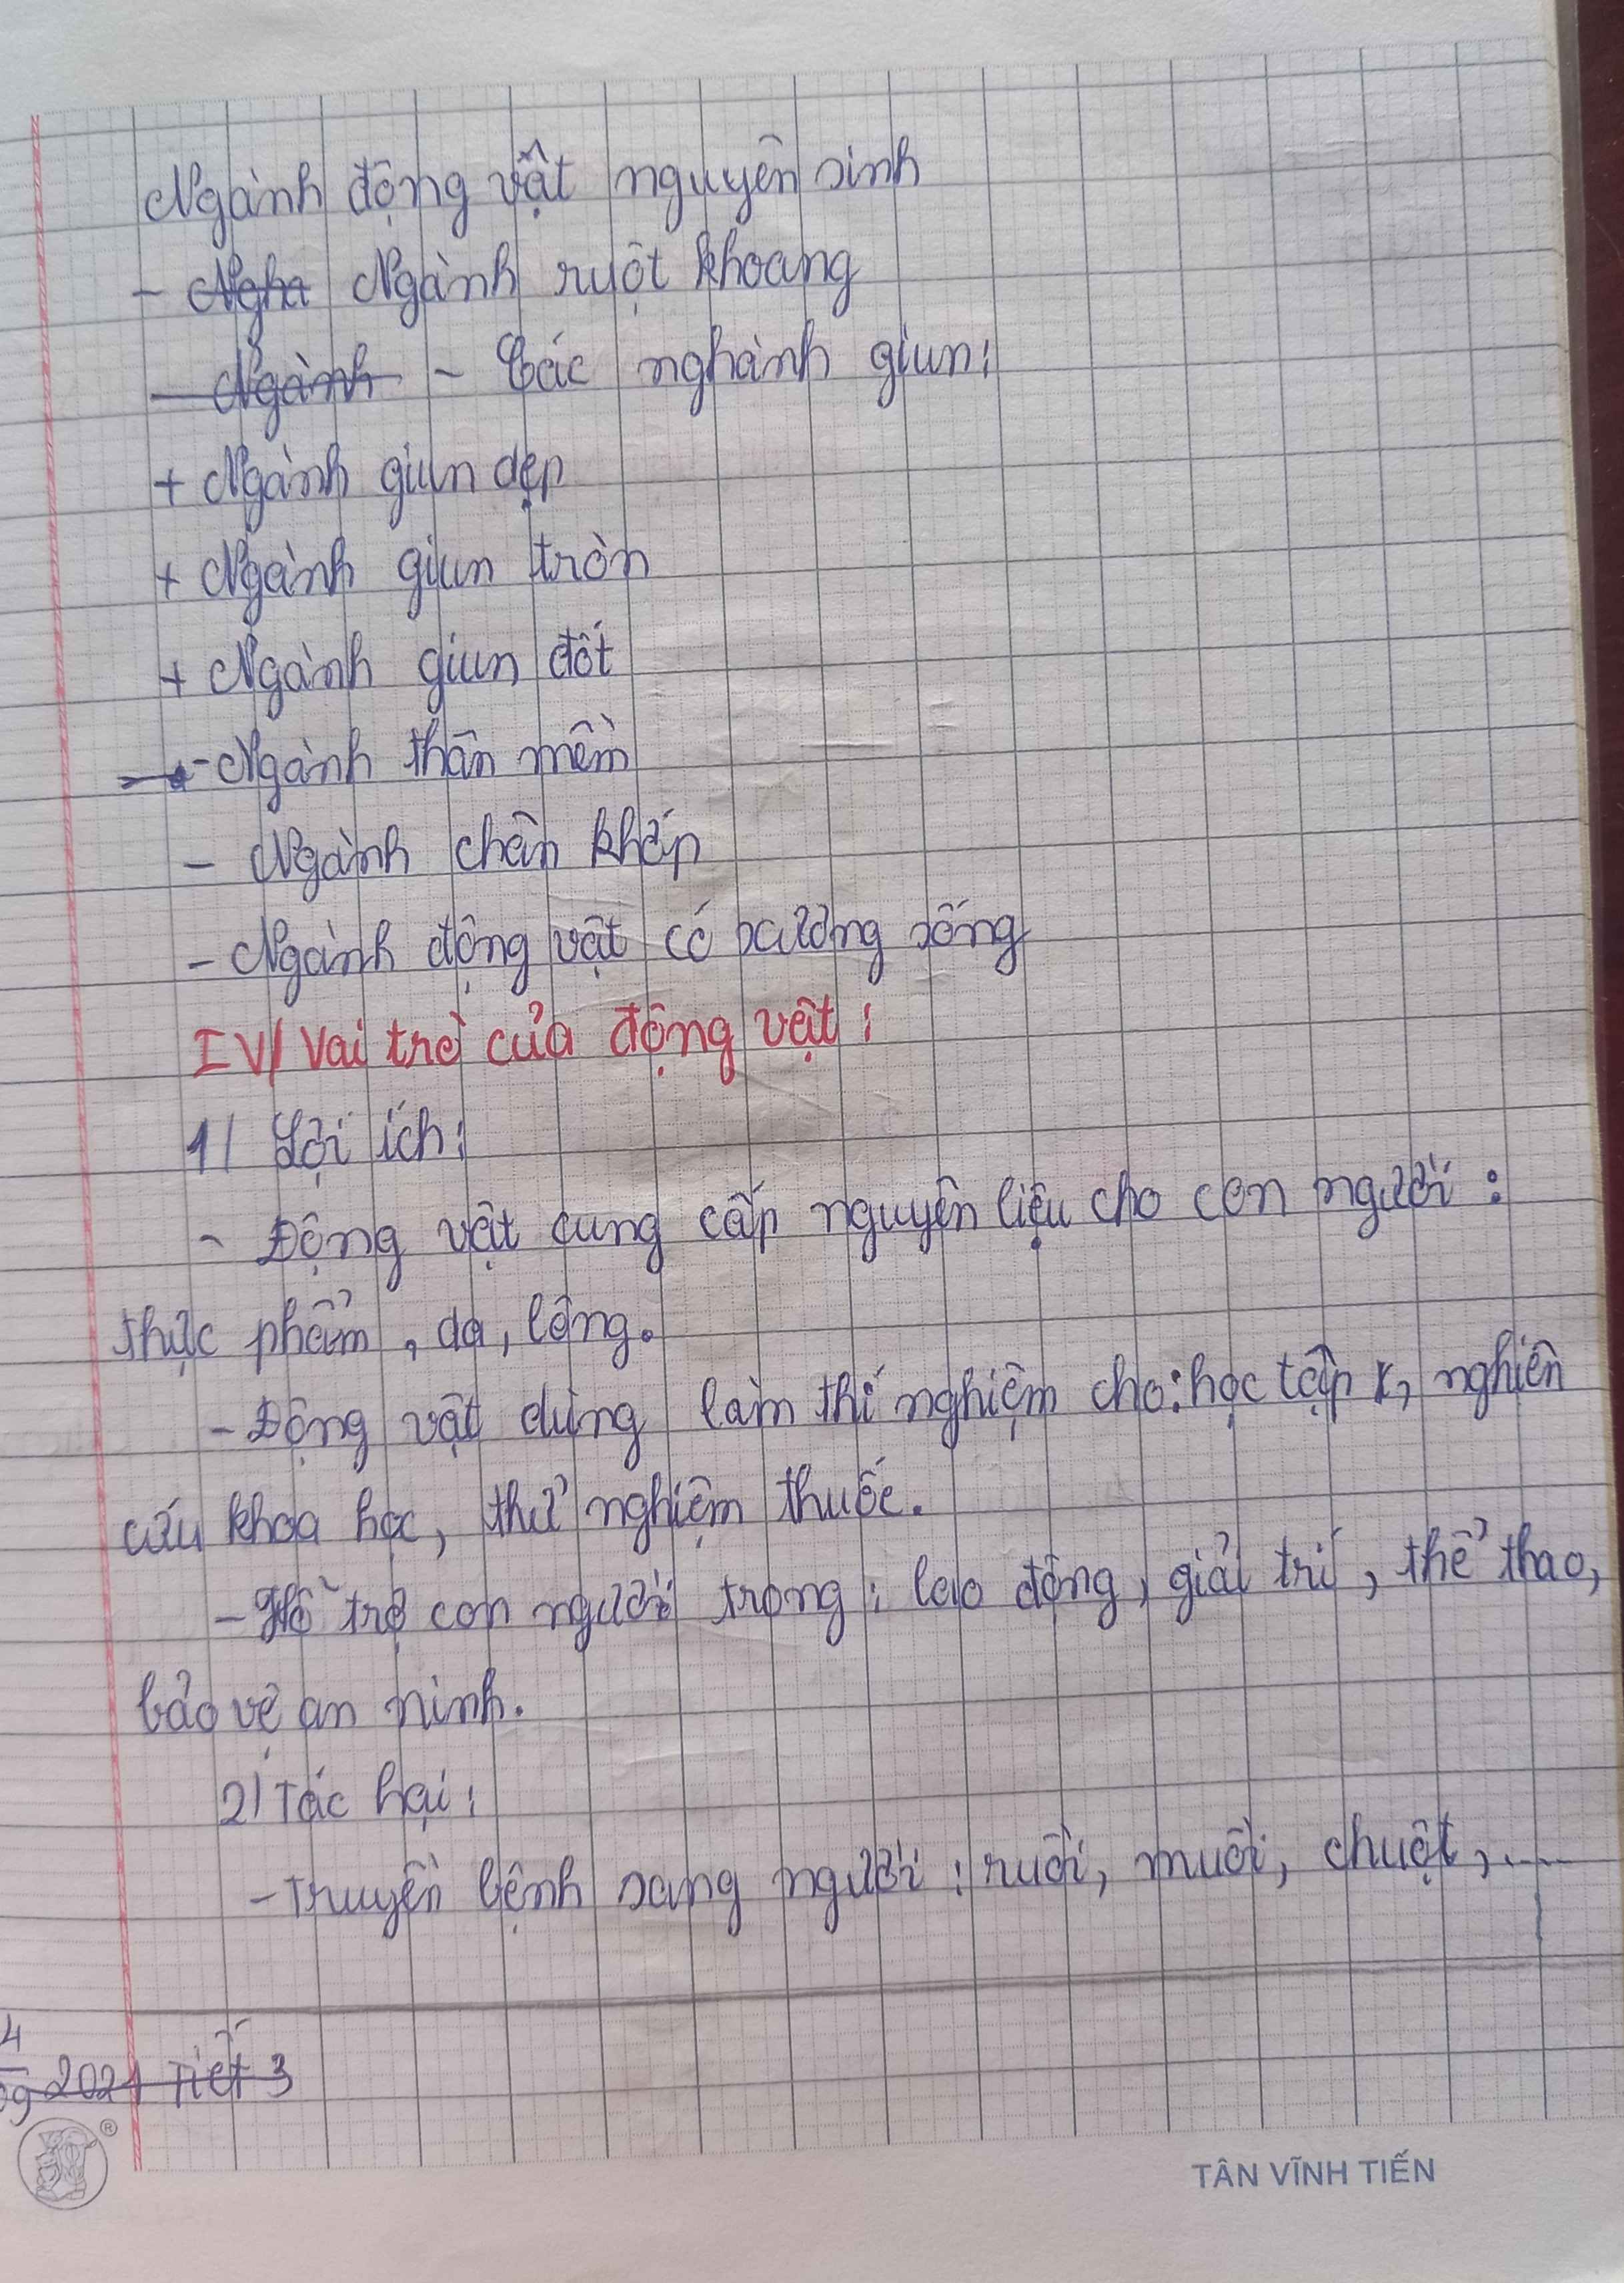 Ngành động vật nguyên sinh
- Ngha Ngành ruột khoang
- Ngành - Các nghành giun:
+ Ngành giun dẹp
+ Ngành giun tròn
+ Ngành giun đốt
- Ngành thân mềm
- Ngành chân khớp
- Ngành động vật có xương sống
IV/ Vai trò của động vật:
1/ Lợi ích:
- Động vật cung cấp nguyên liệu cho con người:
thực phẩm, da, lông.
- Động vật dùng làm thí nghiệm cho: học tập, nghiên
cứu khoa học, thử nghiệm thuốc.
- Hỗ trợ con người trong: lao động, giải trí, thể thao,
bảo vệ an ninh.
2/ Tác hại:
- Truyền bệnh sang người: ruồi, muỗi, chuột,....
4
09 2021 Tiết 3
®
TÂN VĨNH TIẾN